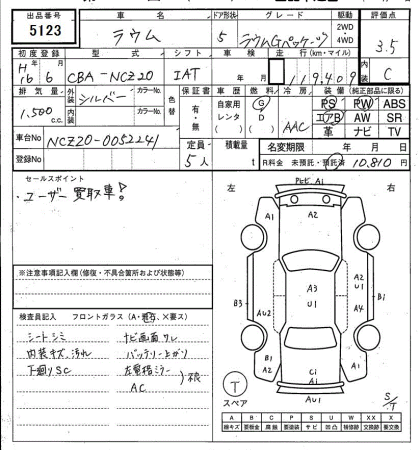 出品番号 車名 ドア形状 グレード 駆動 評価点
5123 ラウム 5 ラウムGパッケージ 2WD・4WD 3.5
初度登録 型式 シフト 車検 走行(km・マイル) 内装
H16年6月 CBA-NCZ20 IAT 年 月 119,409 C
排気量 外装 カラーNo. 色替 保証書 車歴 燃料 冷房 装備(純正部品に限る)
1,500c.c. シルバー 有・無 自家用 レンタ G D AAC PS PW ABS
内装 カラーNo. エアB AW SR
革 ナビ TV
車台No NCZ20-0052241 定員 積載量 名変期限 年 月 日
登録No 5人 t R料金 未預託・預託済 10,810円
セールスポイント
・ユーザー買取車!
※注意事項記入欄(修復・不具合箇所および状態等)
検査員記入 フロントガラス(A・飛石、×要ス)
シートシミ ナビ画面ワレ
内装キズ、汚れ バッテリー上がり
下廻りSC 左電格ミラー
AC 不良
左 右
A1
A1 A2 A1
A2
B3 AU2 A3 U1 A4 B3
U1
B2 A2 Ci A1
Ai
AU1
T
スペア
S/T
A B C P S U W X XX
線キズ 要板金 腐蝕 要塗装 サビ 凹凸 補修跡 要交換 交換跡